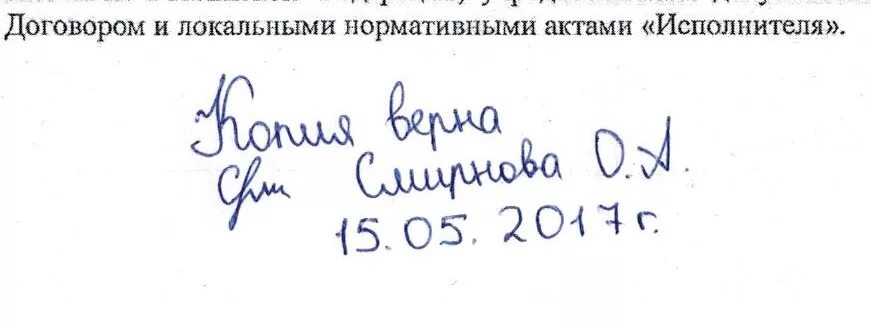 Договором и локальными нормативными актами «Исполнителя».
Копия верна
Смирнова О.А.
15.05.2017 г.